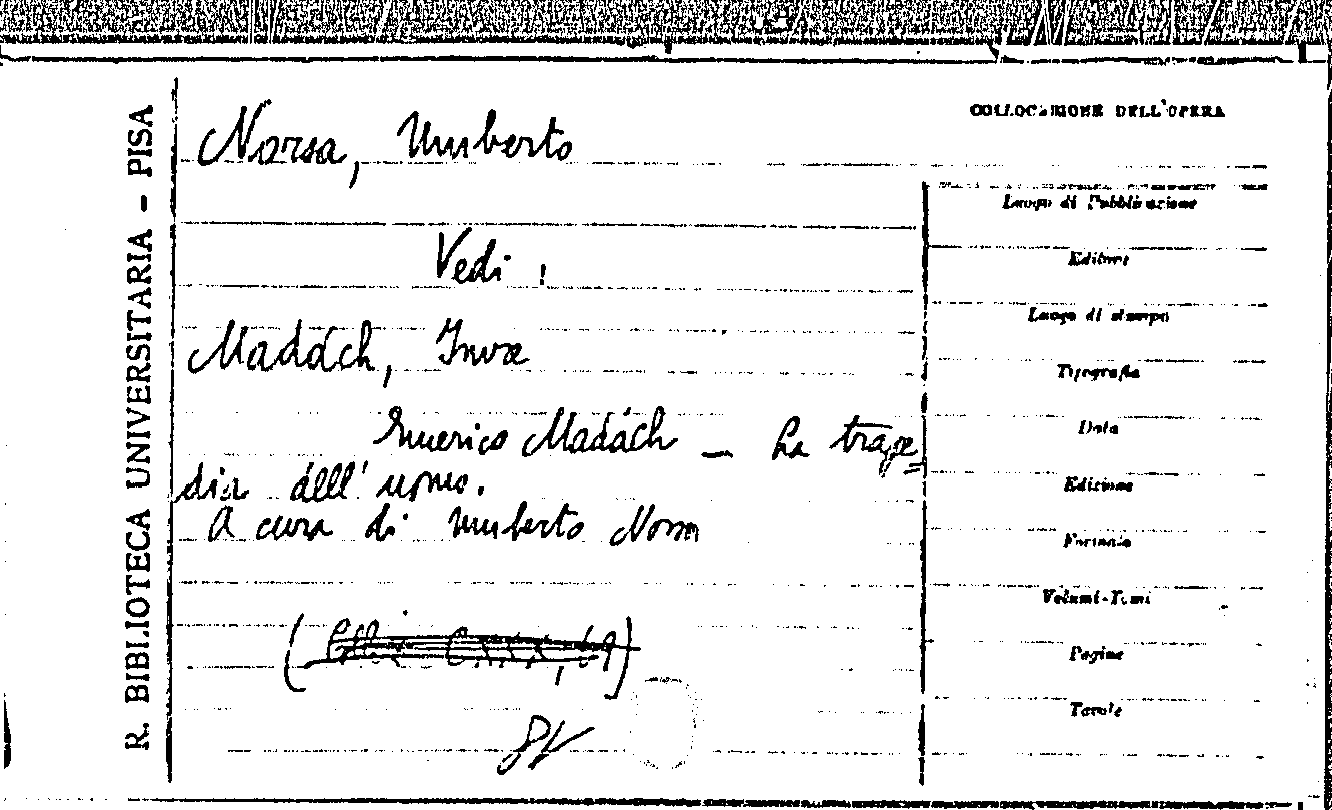 R. BIBLIOTECA UNIVERSITARIA - PISA
COLLOCAZIONE DELL'OPERA
Norsa, Umberto
Luogo di Pubblicazione
Vedi :
Editore
Luogo di stampa
Madách, Imre
Tipografia
Data
Imerico Madách — La trage=
dia dell'uomo.
Edizione
A cura di Umberto Norsa
Formato
Volumi-Tomi
Pagine
Tavole